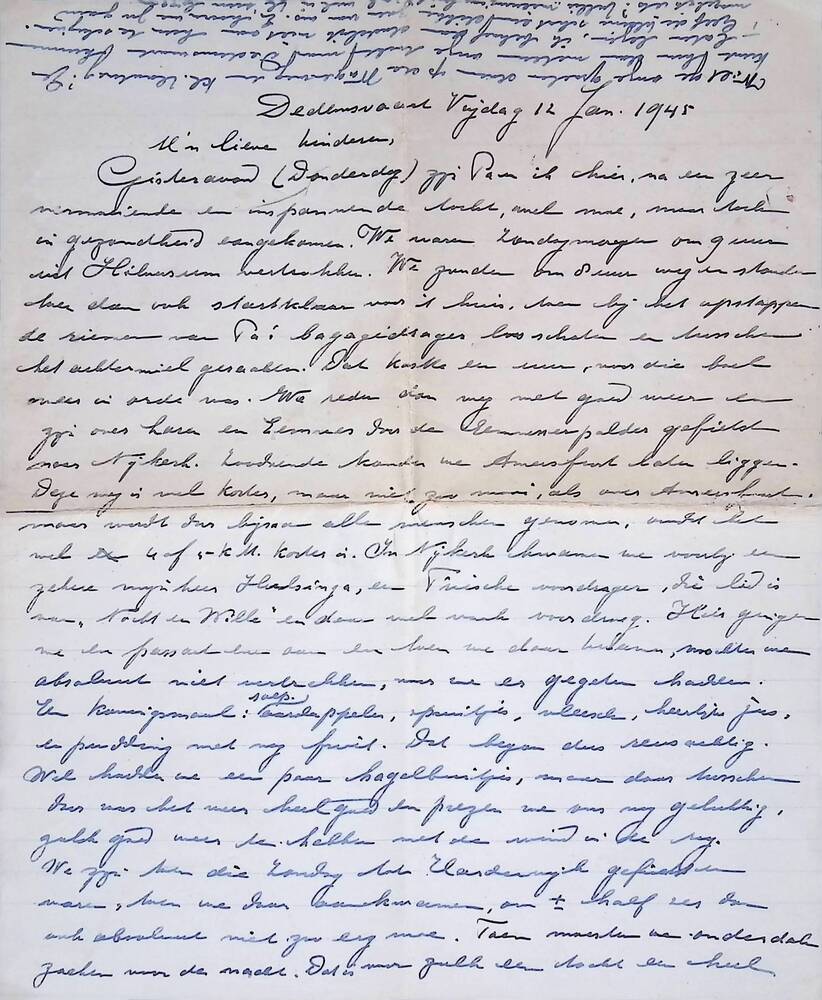 Dedemsvaart Vrijdag 12 Jan. 1945
M'n lieve kinderen,
Gisteravond (Donderdag) zijn Pa en ik hier, na een zeer
vermoeiende en inspannende tocht, wel moe, maar toch
in gezondheid aangekomen. We waren Zondagmorgen om 9 uur
uit Hilversum vertrokken. We zouden om 8 uur weg en stonden
toen dan ook startklaar voor 't huis, toen bij het opstappen
de riemen van Pa's bagagedrager losschoten en tusschen
het achterwiel geraakten. Dat kostte een uur, voor die boel
weer in orde was. We reden dan weg met goed weer en
zijn over Laren en Eemnes door de Eemnesserpolder gefietst
naar Nijkerk. Zoodoende konden we Amersfoort laten liggen.
Deze weg is wel korter, maar niet zoo mooi, als over Amersfoort.
maar wordt dus bijna alle menschen genomen, omdat het
wel 4 of 5 K.M. korter is. In Nijkerk kwamen we voorbij een
zekere mijnheer, een Friesche voordrager, die lid is
van en daar wel vaak voordroeg. Hier gingen
we en passant even aan en toen we daar kwamen, mochten we
absoluut niet vertrekken, voor we er gegeten hadden.
soep.
Een Koningsmaal: aardappelen, spruitjes, vleesch, heerlijke jus,
en pudding met nog fruit. Dat begon dus reusachtig.
Wel hadden we een paar hagelbuitjes, maar daar tusschen
door was het weer heel goed en prezen we ons nog gelukkig,
zulk goed weer te hebben met de wind in de rug.
We zijn toen die Zondag tot Harderwijk gefietst en
waren, toen we daar aankwamen, om ± half zes dan
ook absoluut niet zoo erg moe. Toen moesten we onderdak
zoeken voor de nacht. Dat is voor zulk een tocht een heel